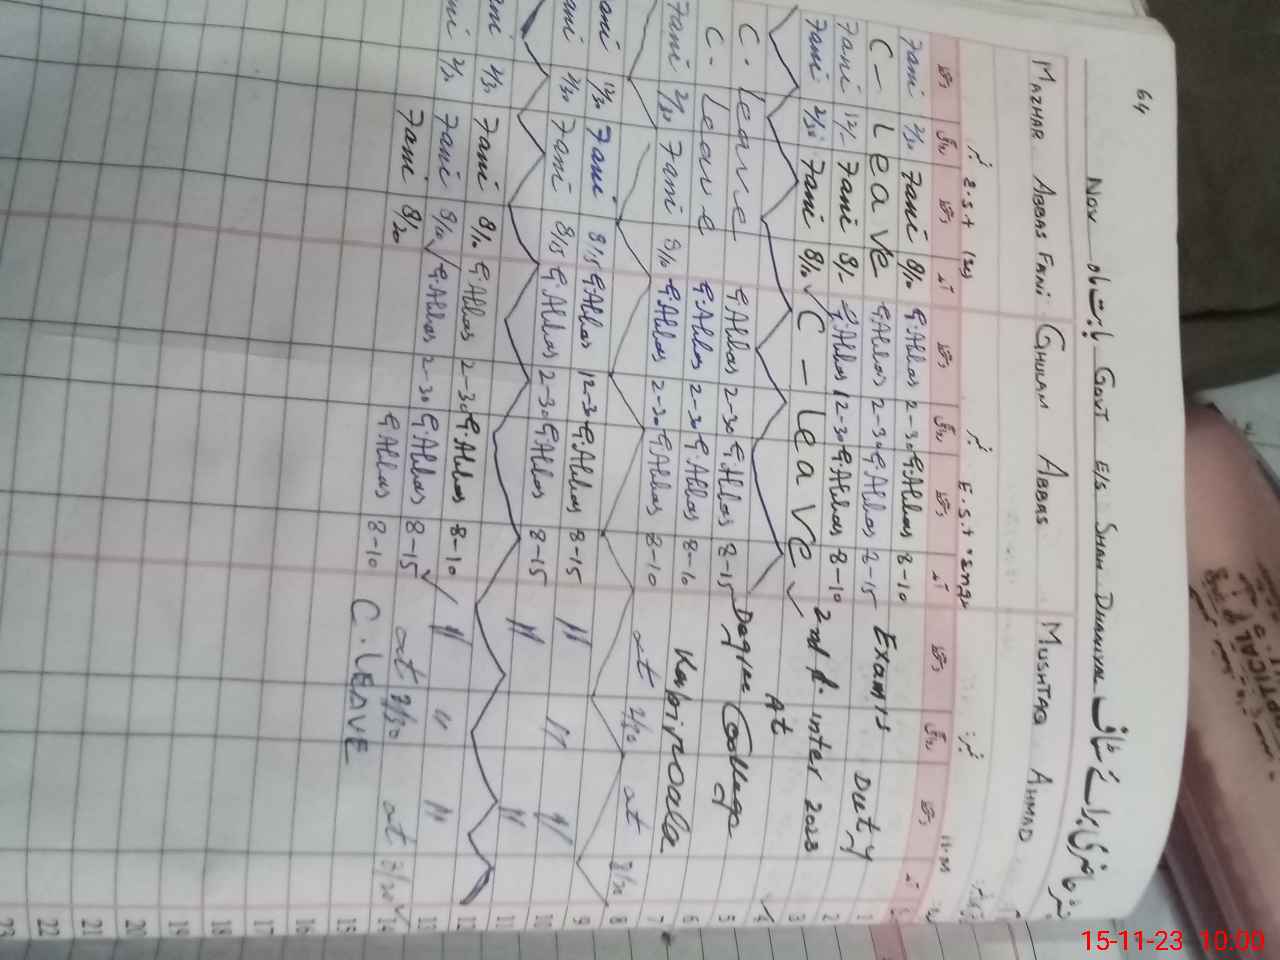 64
Nov بابت ماہ GOVT E/S SHAH DHANIWAL رجسٹر حاضری برائے سٹاف
MAZHAR ABBAS FANI GHULAM ABBAS MUSHTAQ AHMAD
E.S.T E.S.T H.M
Fani 2/30 Fani 8/10 G.Abbas 2-30 G.Abbas 8-10 Exams Duty 1
C - Leave G.Abbas 2-30 G.Abbas 8-15 2
Fani 12/- Fani 8/- G.Abbas 12-30 G.Abbas 8-10 2nd P. inter 2023 3
Fani 2/30 Fani 8/10 ✓ C - Leave ✓ At 4
5
C. Leave G.Abbas 2-30 G.Abbas 8-15 Degree College 6
C. Leave G.Abbas 2-30 G.Abbas 8-10 Kabirwala 7
Fani 2/30 Fani 8/10 G.Abbas 2-30 G.Abbas 8-10 at 2/30 at 8/20 8
9
Fani 12/30 Fani 8/15 G.Abbas 12-30 G.Abbas 8-15 〃 〃 〃 10
Fani 2/30 Fani 8/15 G.Abbas 2-30 G.Abbas 8-15 〃 〃 11
12
Fani 2/30 Fani 8/10 G.Abbas 2-30 G.Abbas 8-10 〃 〃 〃 13
Fani 2/30 Fani 8/10 ✓ G.Abbas 2-30 G.Abbas 8-15 ✓ at 2/30 at 8/20 ✓ 14
Fani 8/20 G.Abbas 8-10 C.LEAVE 15
16
17
18
19
20
21
22
23
15-11-23 10:00